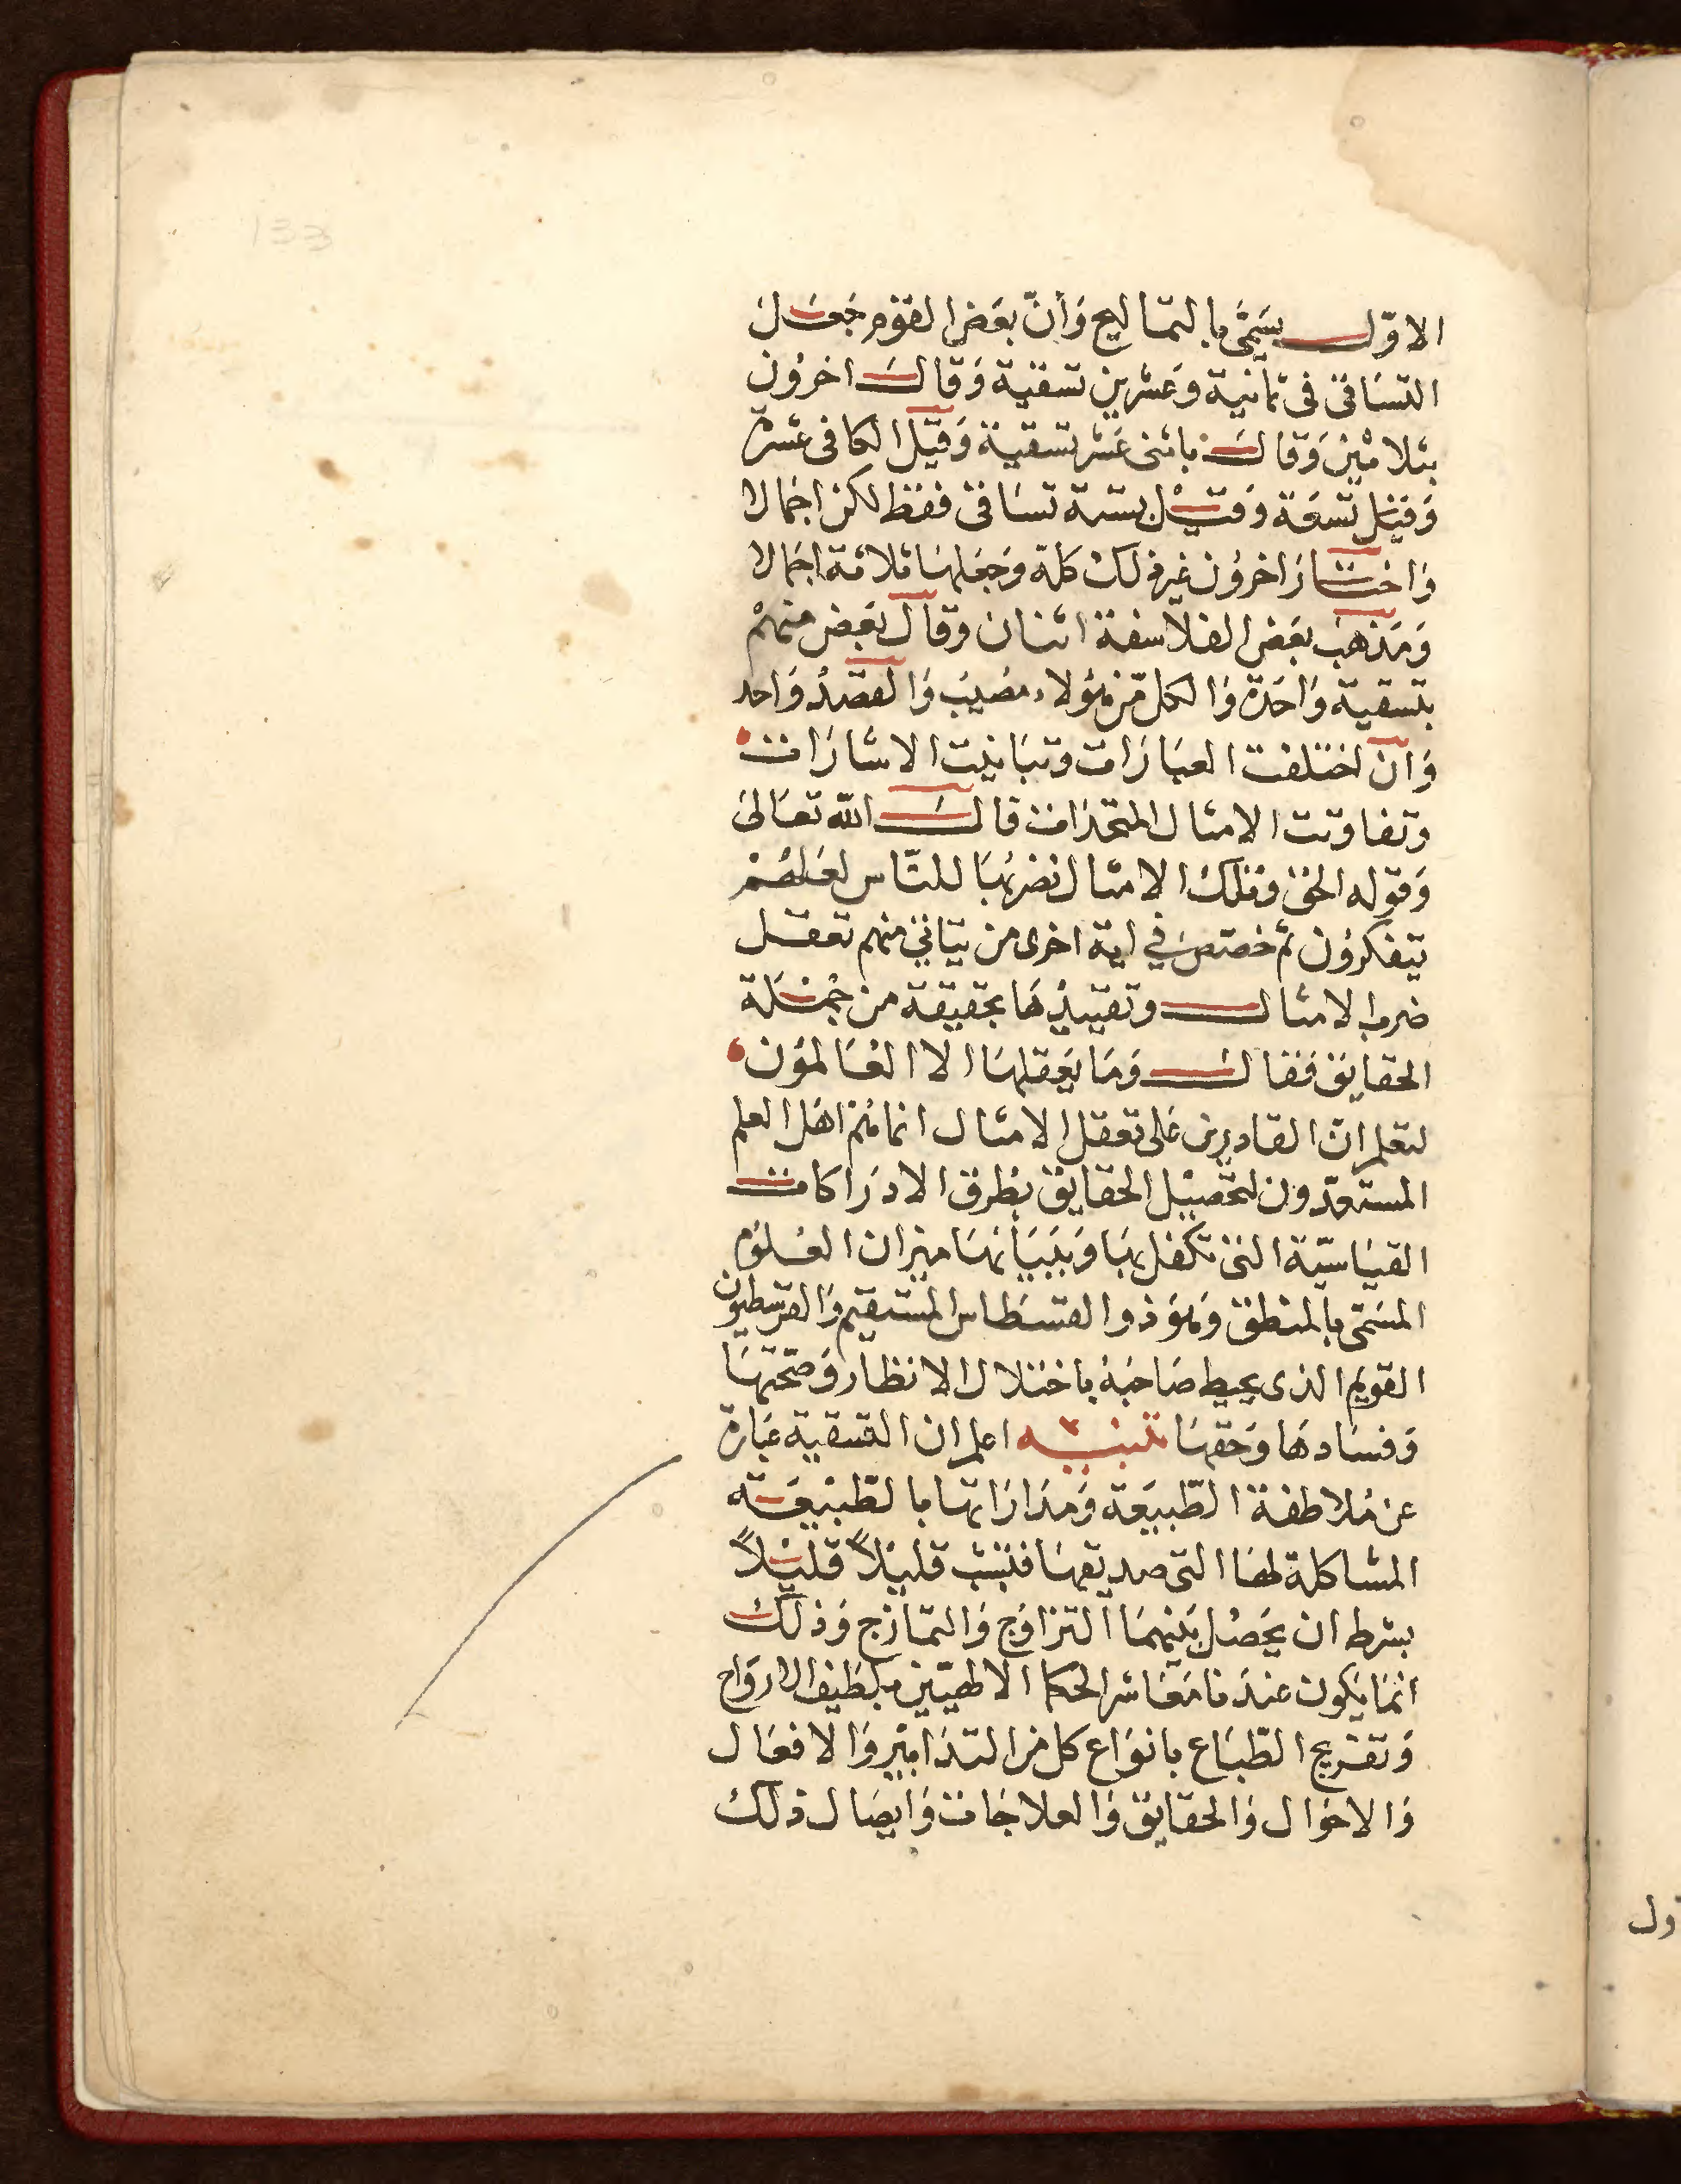 133
الاوّل يسَمّى بالتماليح وَأنّ بعَض القوم جَعَل
التسَاقى فى ثمانية وعَشرين تسقية وَقالَ اخرُون
بثلاثين وَقالَ باثنى عَشر تسقية وَقيل الكافى عَشرة
وَقيل تسعَة وَقيْل بستة تسَاقى فقط لكن اجمالا
وَاختار اخروُن غير ذلك كلة وَجَعَلهَا ثلاثة اجَمالا
وَمَذهب بعَض الفلاسفة اثنان وَقال بعَض منهمْ
بتسقية وَاحَدة وَالكل من هؤلاء مصُيبَ وَالقصْد وَاحد
وَان اختلفت العبَارَات وتبَاينت الاشارَات
وتفاوتت الامثال المتخذات قالَ الله تعَالىَ
وَقوله الحق وتلك الامثال نضربُهَا للناس لعَلهُمْ
يتفكروُن ثم خصّص في اية اخرى من يتاتى منهم تعقل
ضرب الامثال وتقييدْهَا بحقيقة من جُمْلَة
الحقايق فقالَ وَمَا يَعقلهَا الا العَالموُن
لتعلم انّ القادرين عَلى تعقل الامثال انما هُمْ اهَل العلم
المستعدّون لتحَصيْل الحقايق بطرق الادرَاكات
القيَاسيّة التى تكفل بهَا وَببَيَانهَا ميزان العُلوُم
المسَمّى بالمنطق وَهوَ ذو القسْطاس المستقيم وَالقرسطيون
القويم الذى يحيط صَاحبَهُ باختلال الانظار وَصحّتهَا
وَفسَادهَا وَحَقهَا تنبيه اعلم ان التسقية عبَارة
عن مُلاطفة الطبيعَة وَمدَارَاتها بالطبيْعَة
المشاكلة لهَا التى صديقهَا فتنشب قليْلاً قليْلاً
بشرط ان يحَصُل بَينهمَا التزاوُج وَالتمَازج وَذلكَ
انمَا يكون عندَنا مَعَاشر الحكما الالهيّين بلطيف الارْوَاح
وَتفريج الطبَاع بانوَاع كل من التدَابيْر وَالافعَال
وَالاحوَال وَالحقايق وَالعلاجَات وَايصَال ذلك